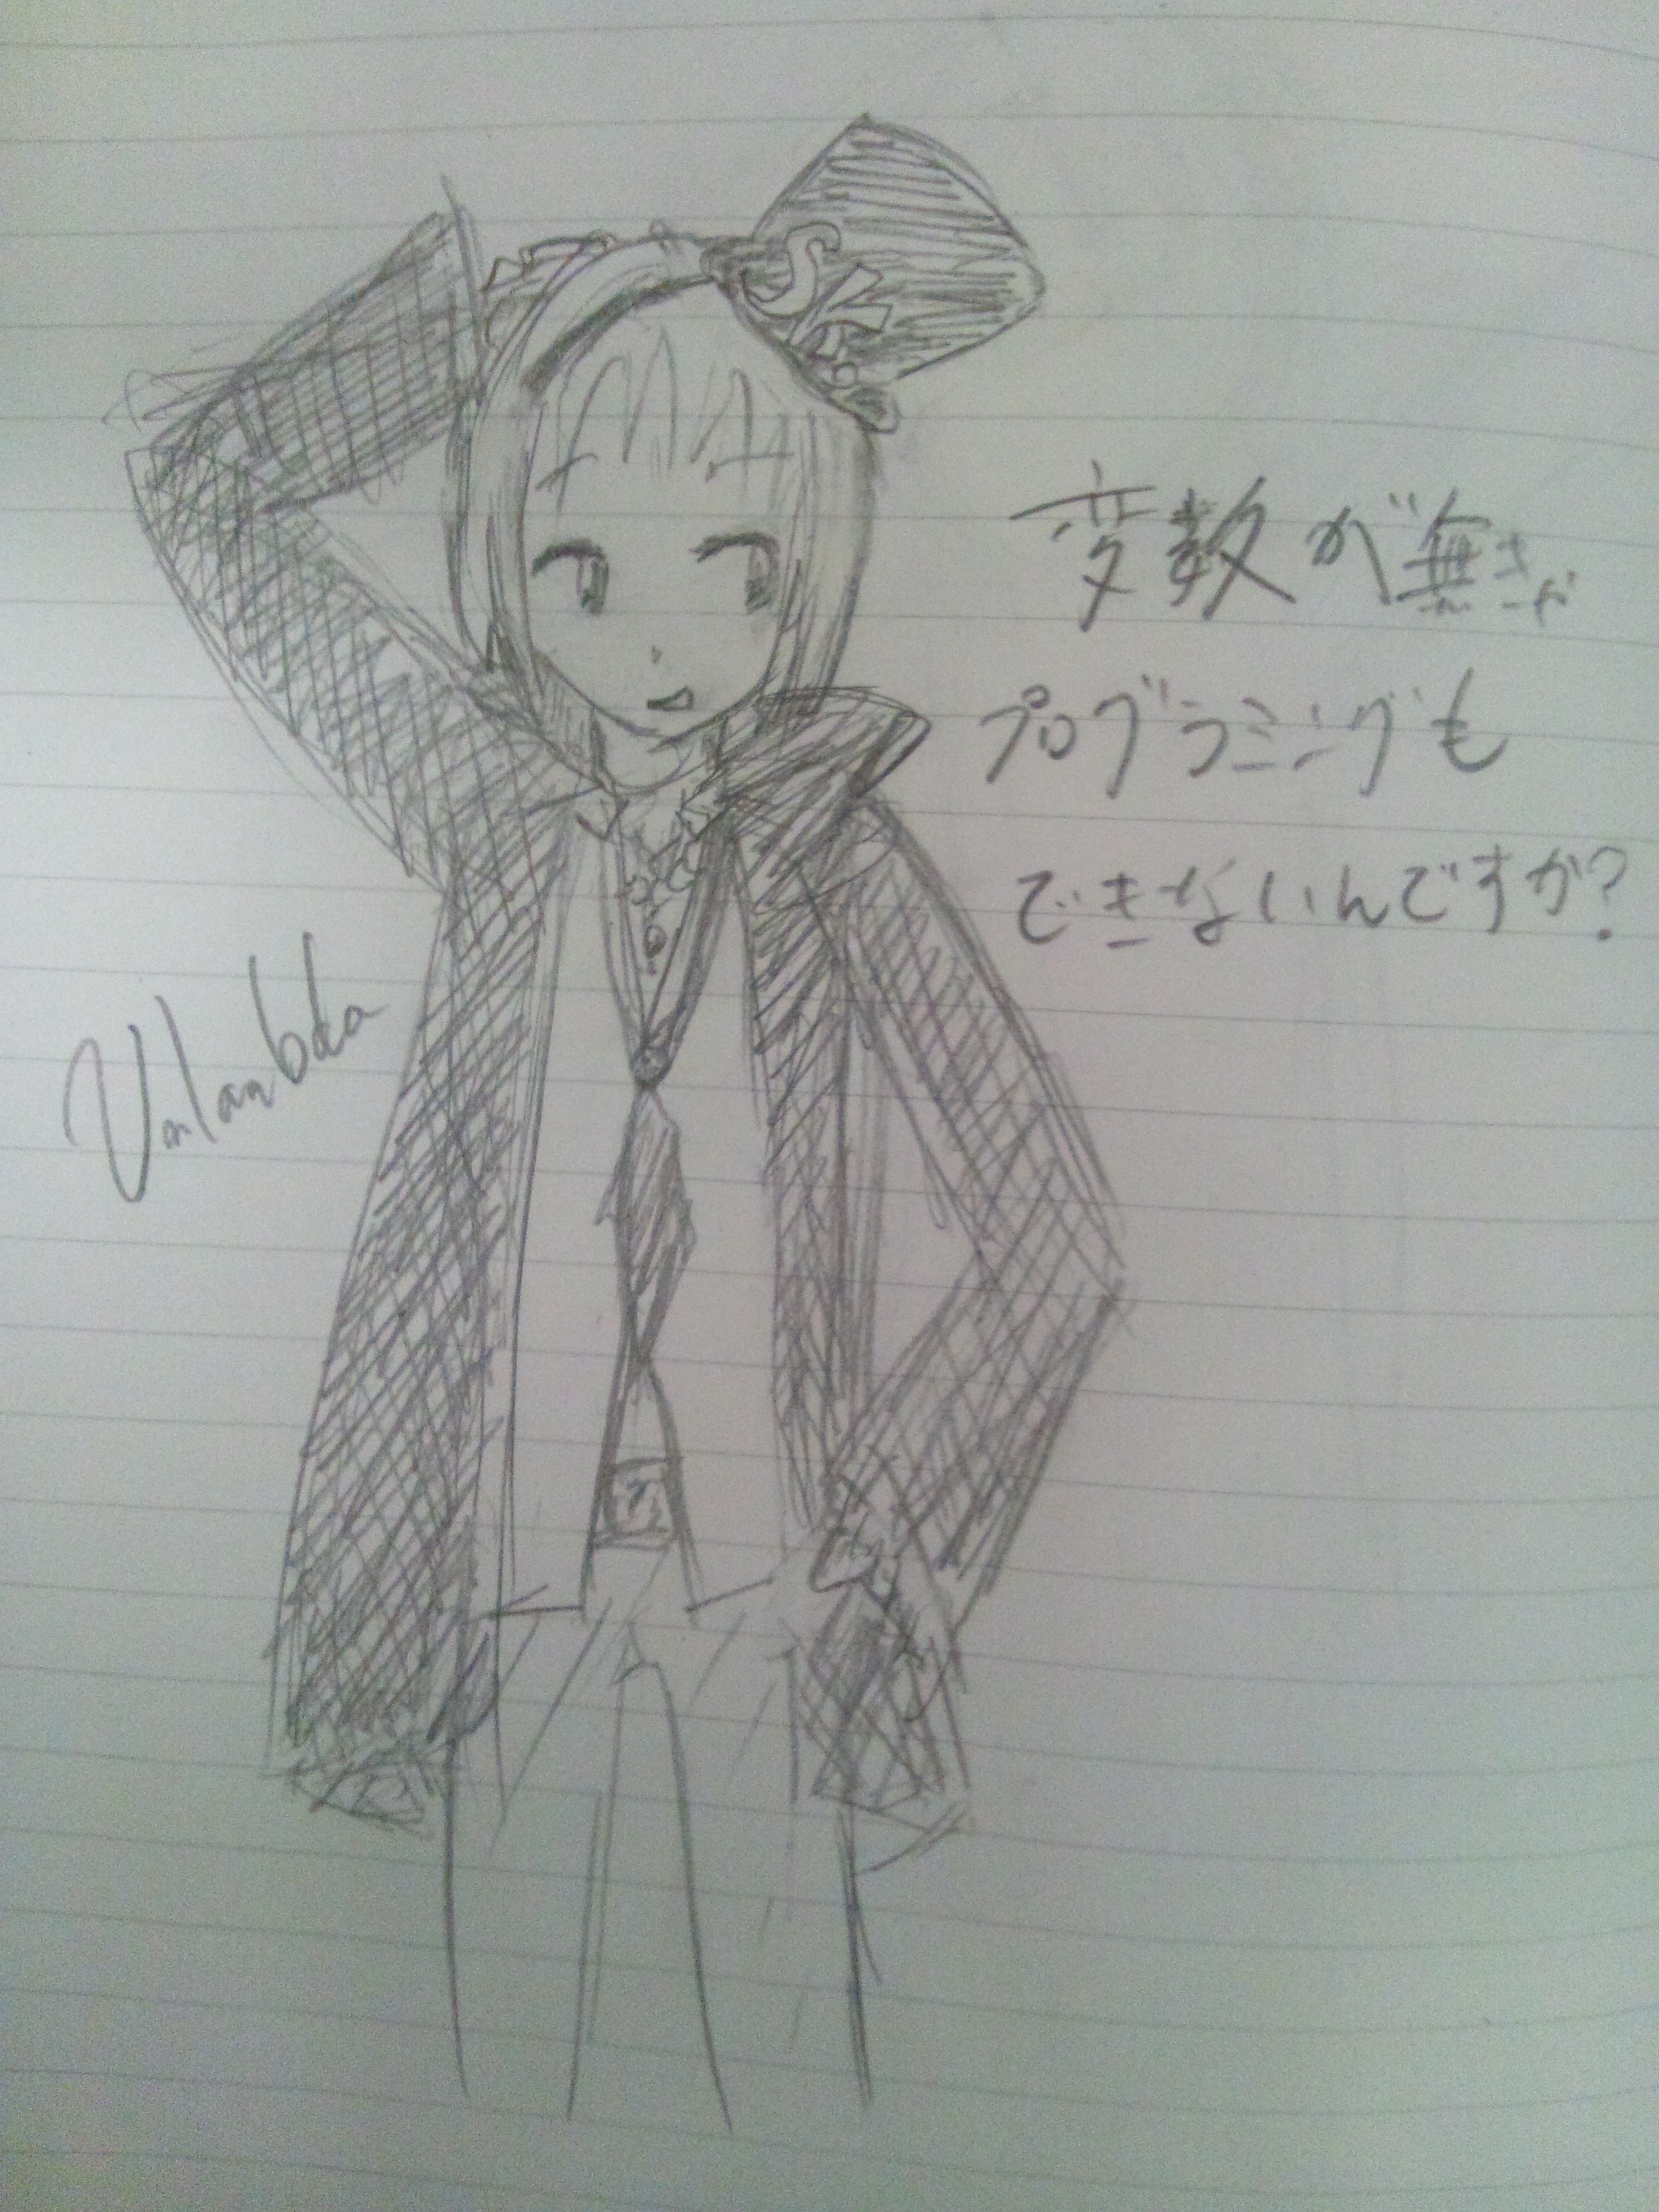 変数が無きゃ
プログラミングも
できないんですか?
Unlambda
SK